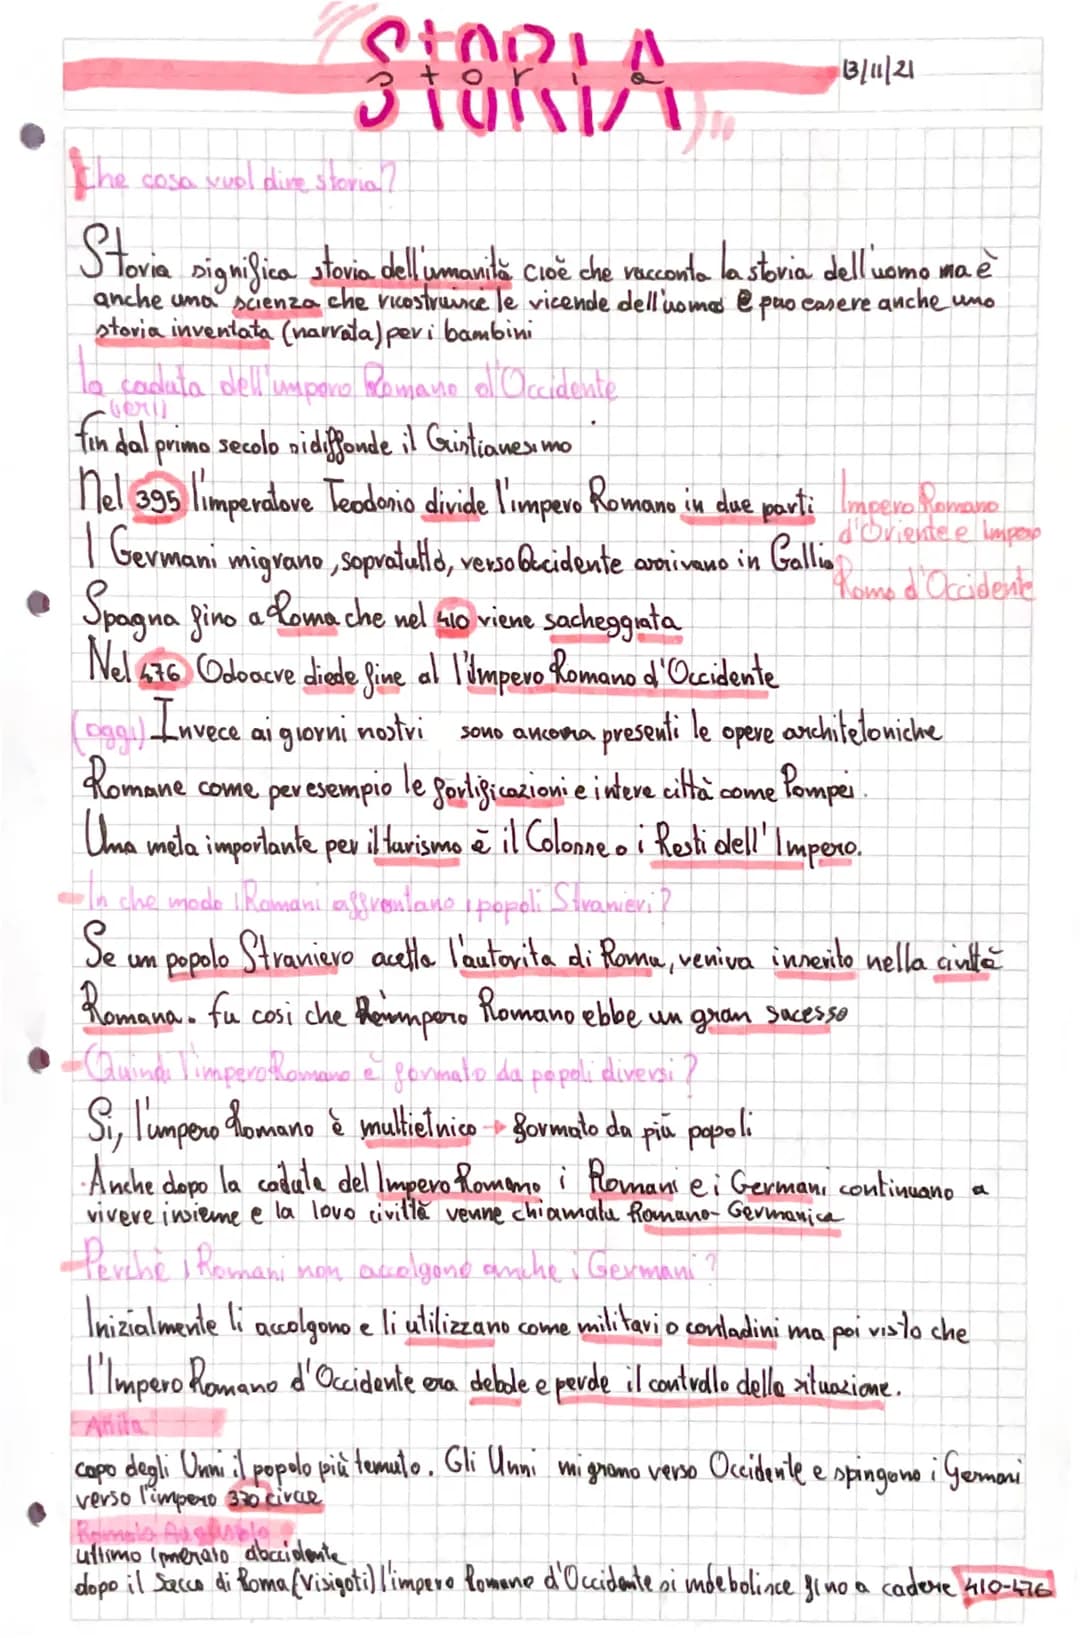 STORIA
storia
13/11/21
Che cosa vuol dire storia?
Storia significa storia dell'umanità cioè che racconta la storia dell'uomo ma è
anche una scienza che ricostruisce le vicende dell'uomo e può essere anche una
storia inventata (narrata) per i bambini
la caduta dell'impero Romano d'Occidente
(ieri)
fin dal primo secolo si diffonde il Cristianesimo
Nel 395 l'imperatore Teodosio divide l'impero Romano in due parti Impero Romano
d'Oriente e Impero
Romo d'Occidente
I Germani migrano, sopratutto, verso Occidente arrivano in Gallia
Spagna fino a Roma che nel 410 viene sacheggiata
Nel 476 Odoacre diede fine al l'Impero Romano d'Occidente
(oggi) Invece ai giorni nostri sono ancora presenti le opere architetoniche
Romane come per esempio le fortificazioni e intere città come Pompei.
Una meta importante per il turismo è il Colosseo i Resti dell'Impero.
- In che modo i Romani affrontano i popoli Stranieri?
Se un popolo Straniero acetta l'autorita di Roma, veniva inserito nella civiltà
Romana. fu cosi che impero Romano ebbe un gran sucesso
- Quindi l'impero Romano è formato da popoli diversi?
Si, l'impero Romano è multietnico → formato da più popoli
Anche dopo la caduta del Impero Romano i Romani e i Germani continuano a
vivere insieme e la loro civiltà venne chiamata Romano-Germanica
- Perchè i Romani non accolgono anche i Germani?
Inizialmente li accolgono e li utilizzano come militari o contadini ma poi visto che
l'Impero Romano d'Occidente era debole e perde il controllo della situazione.
capo degli Unni il popolo più temuto. Gli Unni migrano verso Occidente e spingono i Germani
verso l'impero 370 circa
Romolo Augustolo
ultimo d'occidente
dopo il Sacco di Roma (Visigoti) l'impero Romano d'Occidente si indebolisce fino a cadere 410-476